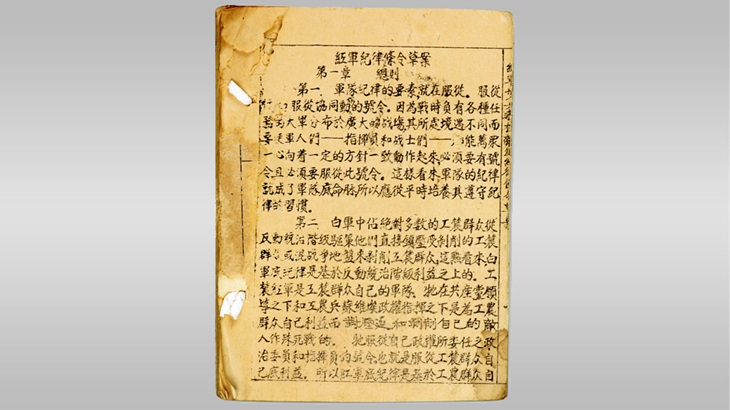 紅軍紀律條令草案
第一章 總則
第一 軍隊紀律的要素就在服從。服從
服從協同動的號令。因為戰時負有各種任
大軍分布於廣大的战塲其所處境遇不同而
要使軍人們——指揮員和战士們——能萬眾
一心向着一定的方針一致動作起來,必須要有號
令且必須要服從此號令。這樣看來軍隊的紀律
就成了軍隊底命脉所以應從平時培養其遵守紀
律的習慣。
第二 白軍中佔絕對多數的工農群众從
反動統治階級驅策他們直接鎮壓受剥削的工農
群众或混战爭地盤来剥削工農群众,這點看来白
軍底紀律是基於反動統治階級利益之上的。工
農紅軍是工農群众自己的軍隊。牠在共產党領
導之下和工農兵蘇維埃政權指揮之下是為工農
群众自己利益而對壓逼和剥削自己的敵
人作殊死战的。牠服從自己政權所委任之政
治委員和指揮員的號令,也就是服從工農群众自
己底利益。所以紅軍底紀律是基於工農群众自